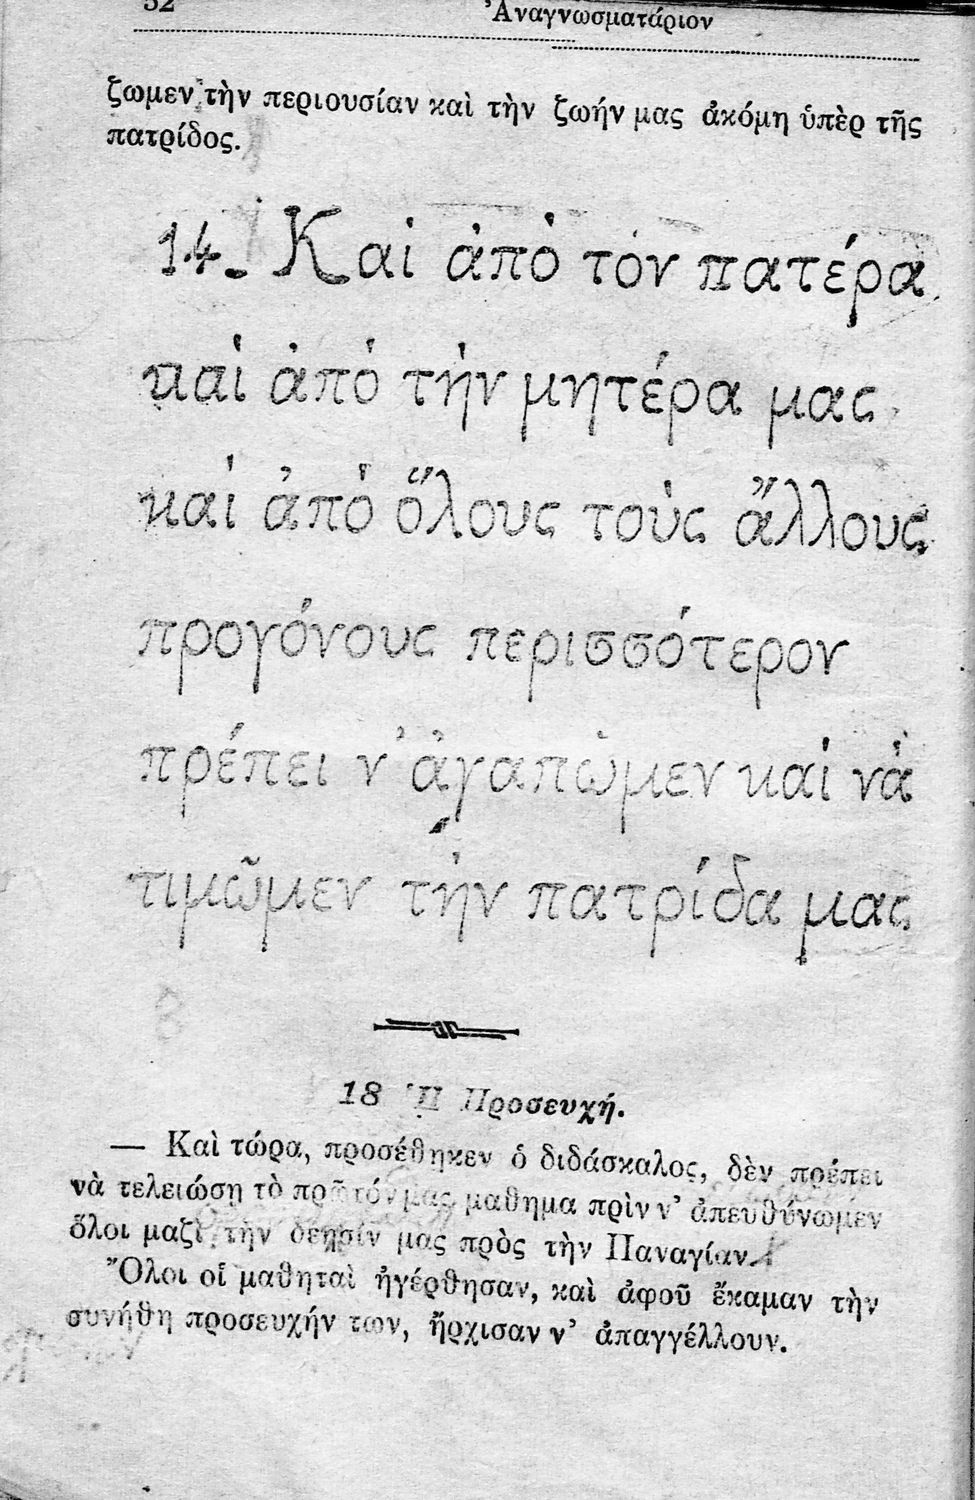 52 Ἀναγνωσματάριον
ζωμεν τὴν περιουσίαν καὶ τὴν ζωήν μας ἀκόμη ὑπὲρ τῆς
πατρίδος.
14. Καὶ ἀπὸ τὸν πατέρα
καὶ ἀπὸ τὴν μητέρα μας
καὶ ἀπὸ ὅλους τοὺς ἄλλους
προγόνους περισσότερον
πρέπει ν' ἀγαπῶμεν καὶ νὰ
τιμῶμεν τὴν πατρίδα μας
18 Ἡ Προσευχή.
— Καὶ τώρα, προσέθηκεν ὁ διδάσκαλος, δὲν πρέπει
νὰ τελειώσῃ τὸ πρῶτόν μας μαθημα πρὶν ν' ἀπευθύνωμεν
ὅλοι μαζὶ τὴν δεησίν μας πρὸς τὴν Παναγίαν.
Ὅλοι οἱ μαθηταὶ ἠγέρθησαν, καὶ ἀφοῦ ἔκαμαν τὴν
συνήθη προσευχήν των, ἤρχισαν ν' ἀπαγγέλλουν.